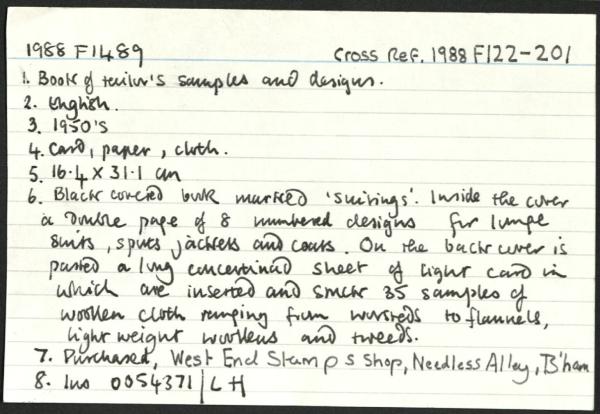 1988 F1489 Cross Ref. 1988 F122-201
1. Book of tailor's samples and designs.
2. English.
3. 1950's
4. Card, paper, cloth.
5. 16.4 x 31.1 cm
6. Black covered book marked 'suitings'. Inside the cover
a double page of 8 numbered designs for lounge
suits, sports jackets and coats. On the back cover is
pasted a long concertinad sheet of light card in
which are inserted and stuck 35 samples of
woollen cloth ranging from worsteds to flannels,
light weight woollens and tweeds.
7. Purchased, West End Stamps Shop, Needless Alley, B'ham
8. Ins 0054371/LH